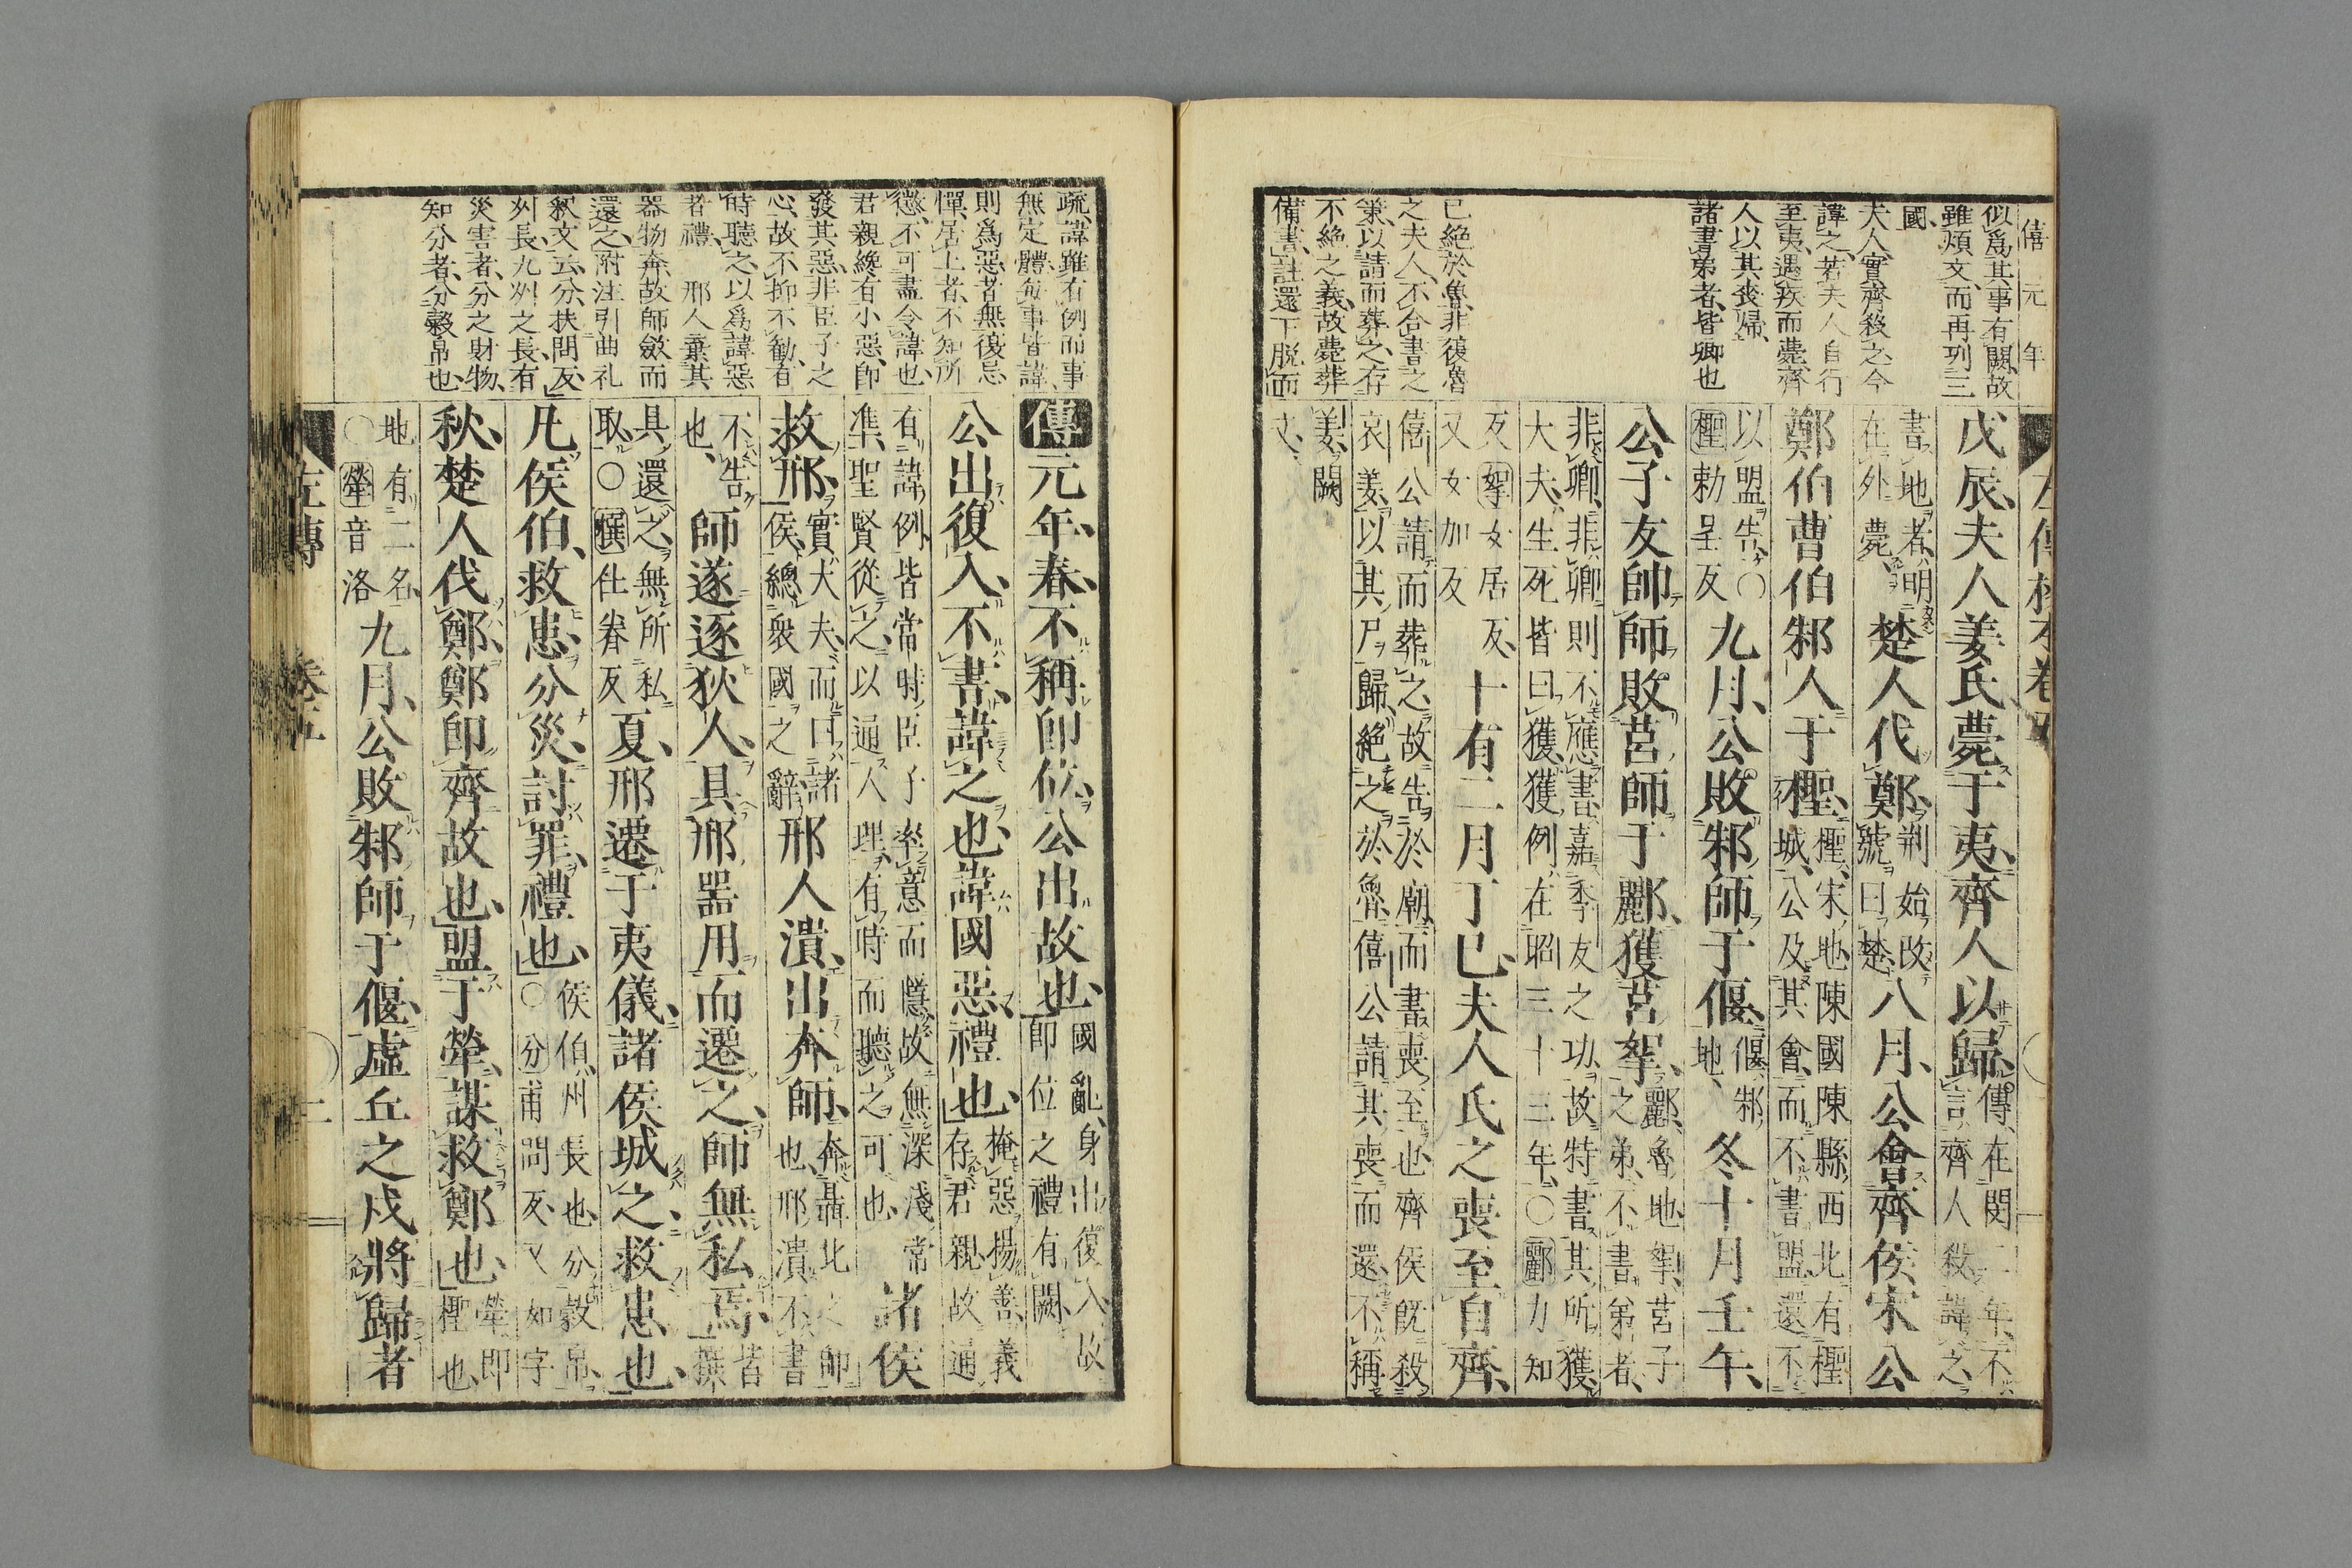 僖元年
似爲其事有闕故
雖煩文而再列三
國
夫人實齊殺之今
諱之若夫人自行
至夷遇疾而薨齊
人以其喪歸
諸書弟者皆卿也
已絶於魯非復魯
之夫人不合書之
策以請而葬之存
不絶之義故薨葬
備書註還下脱而
戊辰夫人姜氏薨于夷齊人以歸
傳在閔二年不
言齊人殺諱之
書地者明
在外薨
楚人伐鄭
荆始改
號曰楚
八月公會齊侯宋公
鄭伯曹伯邾人于檉
檉宋地陳國陳縣西北有檉
城公及其會而不書盟還不
以盟告○
檉勅呈反
九月公敗邾師于偃
偃邾
地
冬十月壬午
公子友帥師敗莒師于酈獲莒挐
酈魯地挐莒子
之弟不書弟者
非卿非卿則不應書嘉季友之功故特書其所獲
大夫生死皆曰獲獲例在昭二十三年○酈力知
反挐女居反
又女加反
十有二月丁巳夫人氏之喪至自齊
僖公請而葬之故告於廟而書喪至也齊侯既殺
哀姜以其尸歸絶之於魯僖公請其喪而還不稱
姜闕
文
左傳 卷五
傳元年春不稱即位公出故也
國亂身出復入故
即位之禮有闕
公出復入不書諱之也諱國惡禮也
掩惡揚善義
存君親故通
有諱例皆當時臣子率意而隱故無深淺常
準聖賢從之以通人理有時而聽之可也
諸侯
救邢
實大夫而曰諸
侯總衆國之辭
邢人潰出奔師
奔聶北之師
也邢潰不書
不告
也
師遂逐狄人具邢器用而遷之師無私焉
皆
撰
具還之無所私
取○撰仕眷反
夏邢遷于夷儀諸侯城之救患也
凡侯伯救患分災討罪禮也
侯伯州長也分穀帛
○分甫問反又如字
秋楚人伐鄭鄭即齊故也盟于犖謀救鄭也
犖即
檉也
地有二名
○犖音洛
九月公敗邾師于偃虚丘之戍將歸者
疏諱雖有例而事
無定體每事皆諱
則爲惡者無復忌
憚居上者不知所
懲不可盡令諱也
君親纔有小惡即
發其惡非臣子之
心故不抑不勸有
時聽之以爲諱惡
者禮 邢人棄其
器物奔故師斂而
還之附注引曲礼
釈文云分扶問反
州長九州之長有
災害者分之財物
知分者分穀帛也
左傳 卷五 二